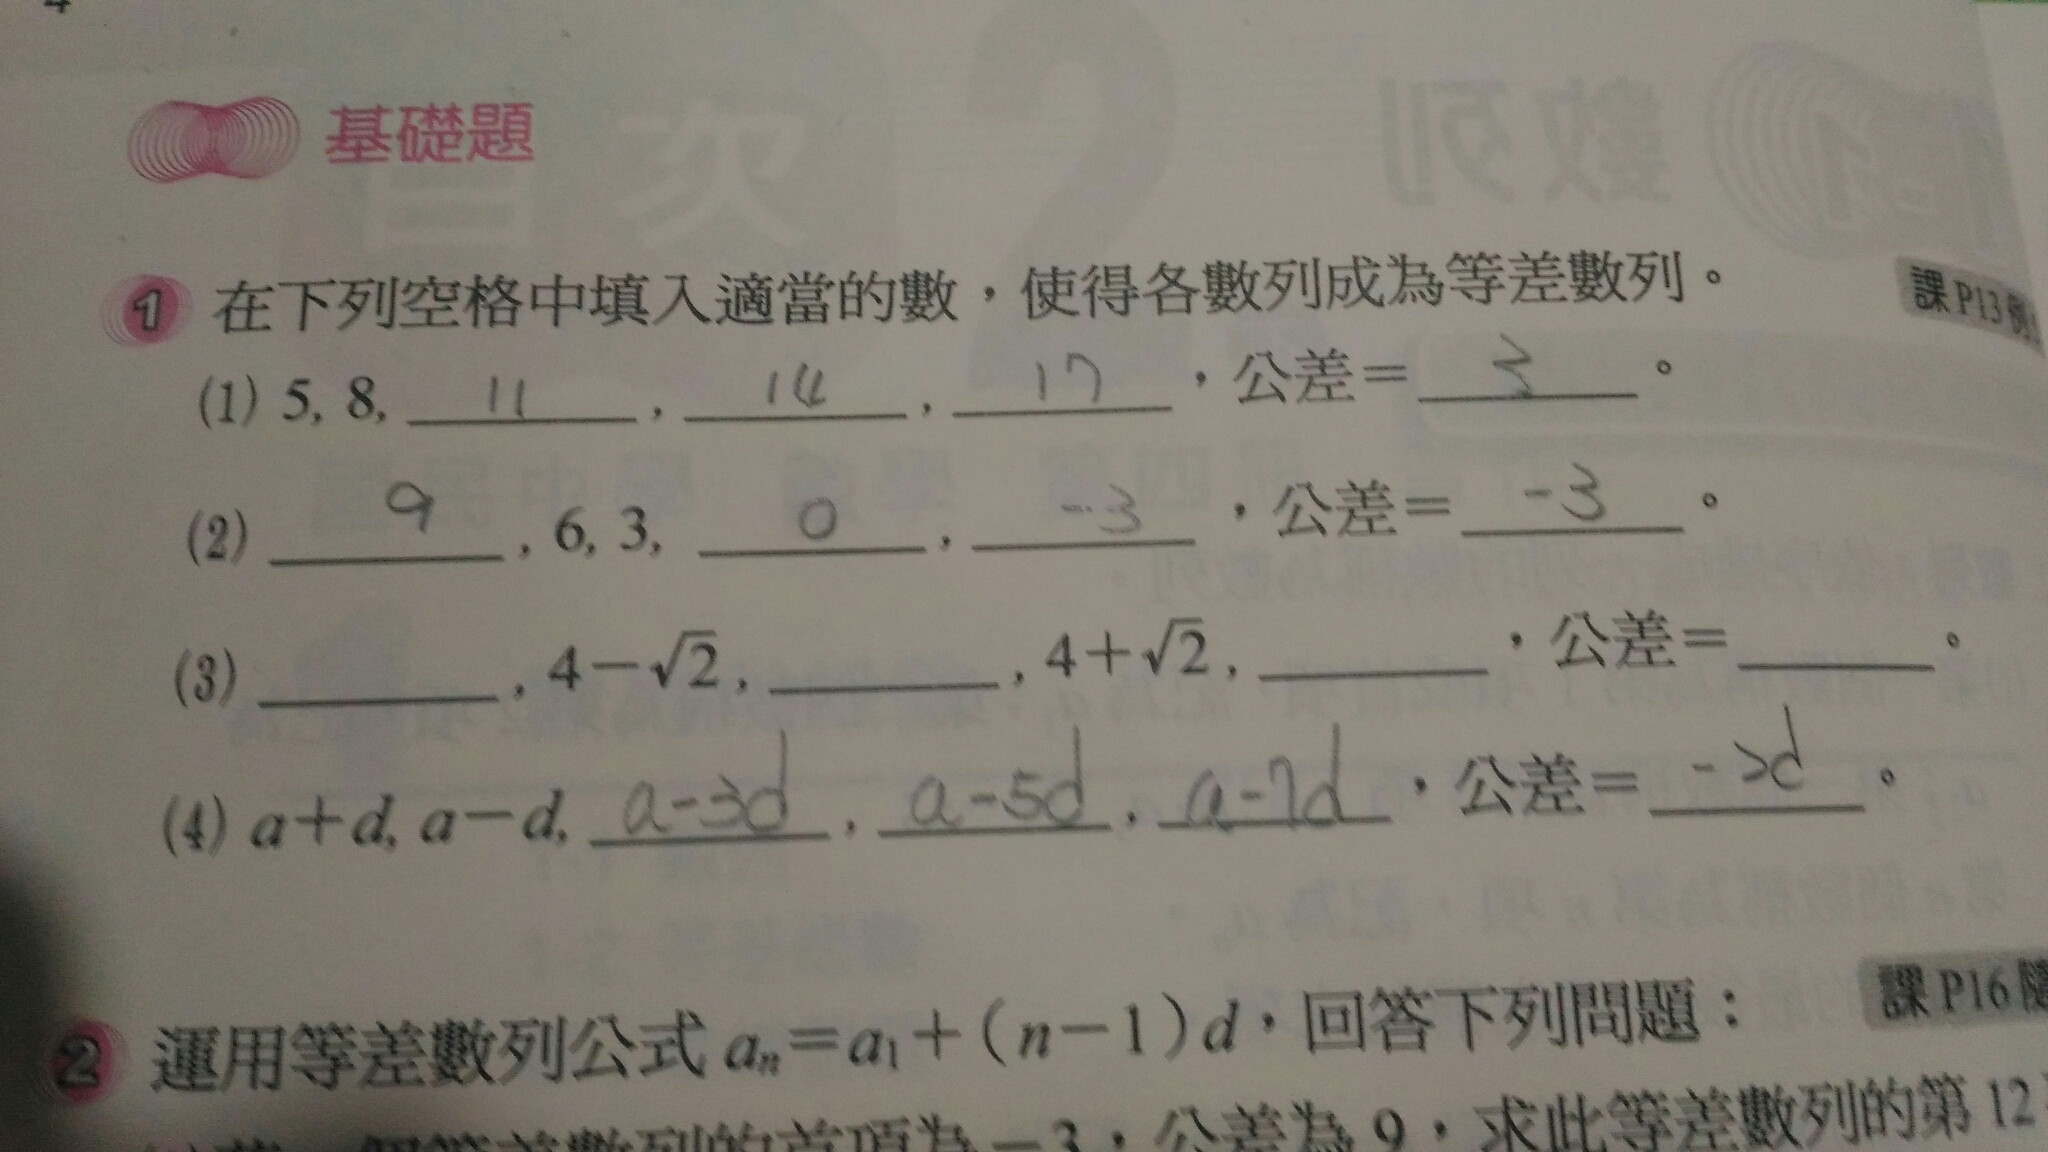 基礎題
1 在下列空格中填入適當的數，使得各數列成為等差數列。 課P13例
(1) 5, 8, 11, 14, 17，公差＝3。
(2) 9, 6, 3, 0, -3，公差＝-3。
(3) ______, 4－√2, ______, 4＋√2, ______，公差＝______。
(4) a＋d, a－d, a-3d, a-5d, a-7d，公差＝-2d。
2 運用等差數列公式 aₙ＝a₁＋(n－1)d，回答下列問題： 課P16隨
等差數列的首項為－3，公差為9，求此等差數列的第12